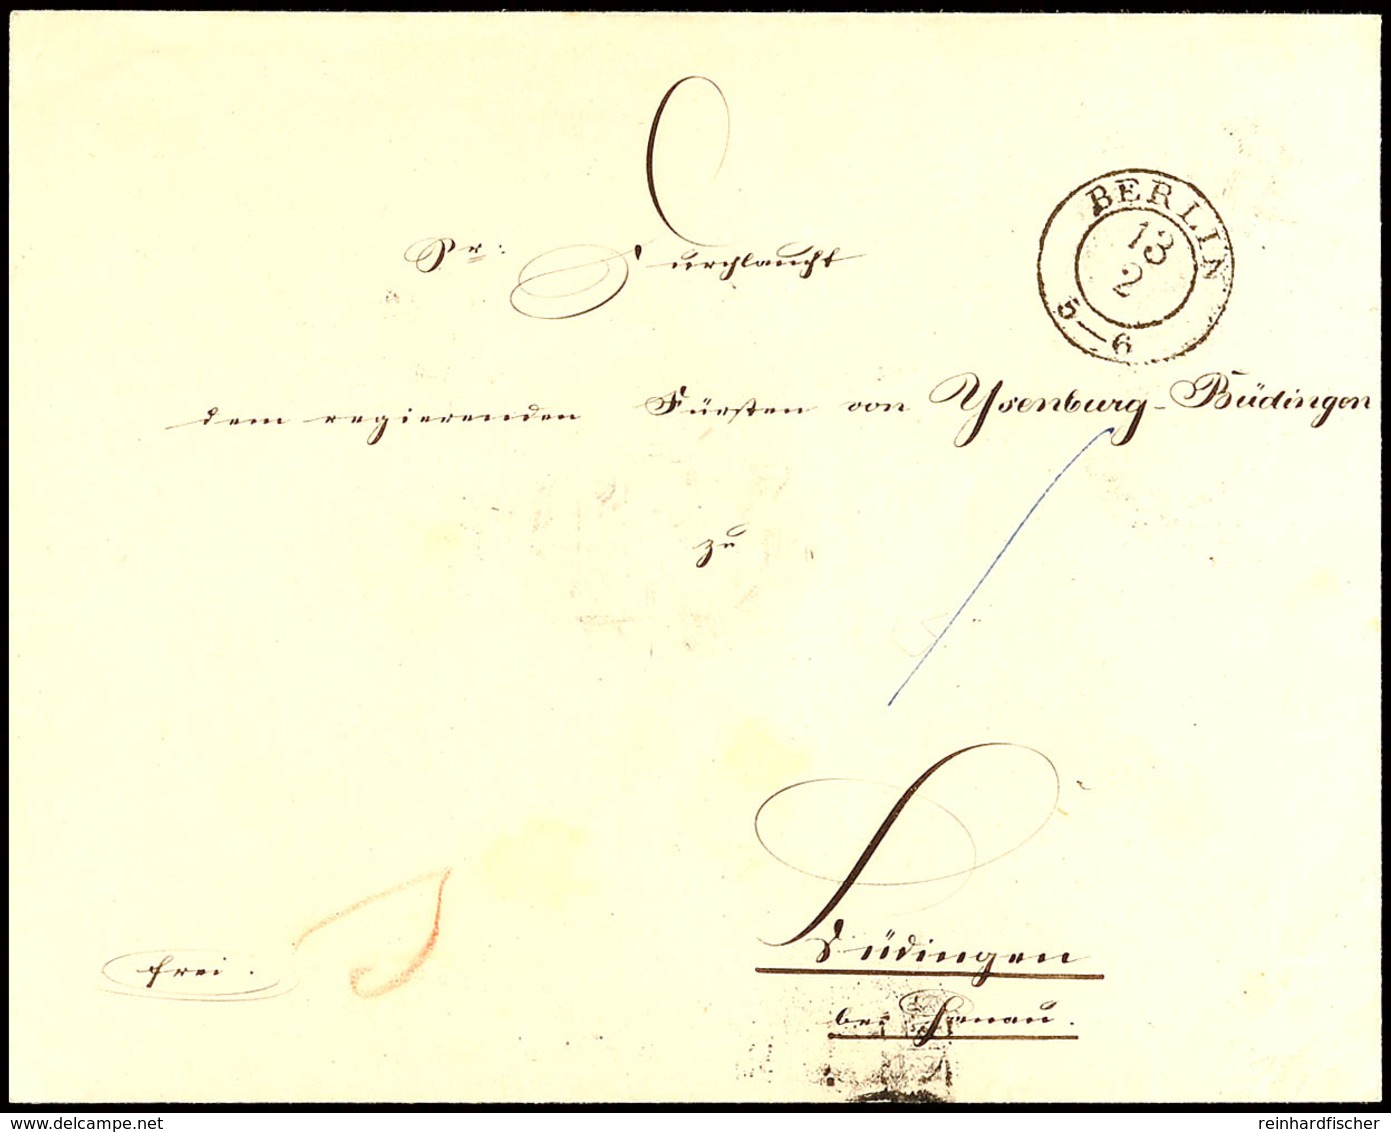 BERLIN
13
2
5—6
Sr: Durchlaucht
dem regierenden Fürsten von Ysenburg-Büdingen
zu
Büdingen
bei Hanau.
frei.
delcampe.net
reinhardfischer